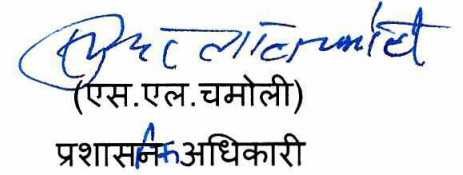 (एस.एल.चमोली)
प्रशासनिक अधिकारी